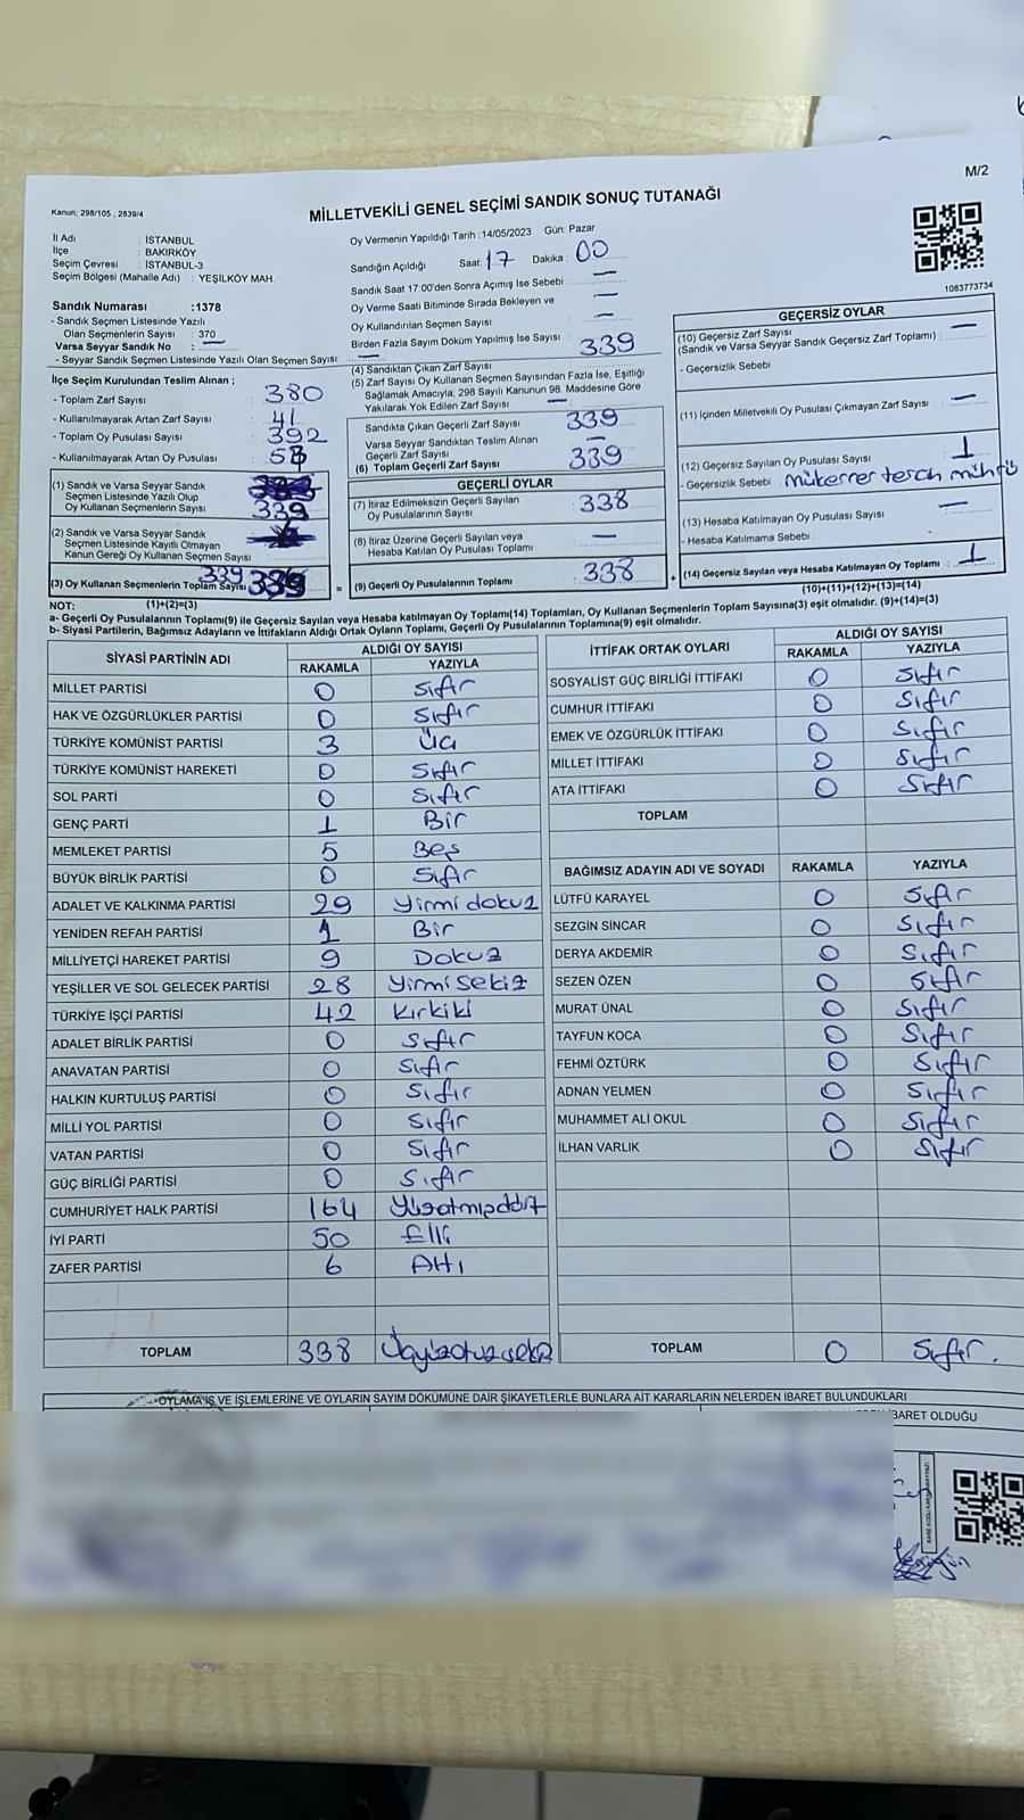 M/2
Kanun: 298/105 , 2839/4
MİLLETVEKİLİ GENEL SEÇİMİ SANDIK SONUÇ TUTANAĞI
İl Adı : İSTANBUL
İlçe : BAKIRKÖY
Seçim Çevresi : İSTANBUL-3
Seçim Bölgesi (Mahalle Adı) : YEŞİLKÖY MAH.
Sandık Numarası :1378
- Sandık Seçmen Listesinde Yazılı
Olan Seçmenlerin Sayısı : 370
Varsa Seyyar Sandık No : —
- Seyyar Sandık Seçmen Listesinde Yazılı Olan Seçmen Sayısı —
İlçe Seçim Kurulundan Teslim Alınan ;
- Toplam Zarf Sayısı 380
- Kullanılmayarak Artan Zarf Sayısı 41
- Toplam Oy Pusulası Sayısı 392
- Kullanılmayarak Artan Oy Pusulası
(1) Sandık ve Varsa Seyyar Sandık
Seçmen Listesinde Yazılı Olup
Oy Kullanan Seçmenlerin Sayısı 339
(2) Sandık ve Varsa Seyyar Sandık
Seçmen Listesinde Kayıtlı Olmayan
Kanun Gereği Oy Kullanan Seçmen Sayısı
(3) Oy Kullanan Seçmenlerin Toplam Sayısı 339 339
(1)+(2)=(3)
Oy Vermenin Yapıldığı Tarih :14/05/2023 Gün: Pazar
Sandığın Açıldığı Saat: 17 Dakika : 00
Sandık Saat 17:00'den Sonra Açımış İse Sebebi —
Oy Verme Saati Bitiminde Sırada Bekleyen ve —
Oy Kullandırılan Seçmen Sayısı —
Birden Fazla Sayım Döküm Yapılmış İse Sayısı —
(4) Sandıktan Çıkan Zarf Sayısı 339
(5) Zarf Sayısı Oy Kullanan Seçmen Sayısından Fazla İse, Eşitliği
Sağlamak Amacıyla, 298 Sayılı Kanunun 98. Maddesine Göre
Yakılarak Yok Edilen Zarf Sayısı —
Sandıkta Çıkan Geçerli Zarf Sayısı 339
Varsa Seyyar Sandıktan Teslim Alınan
Geçerli Zarf Sayısı —
(6) Toplam Geçerli Zarf Sayısı 339
GEÇERLİ OYLAR
(7) İtiraz Edilmeksizin Geçerli Sayılan
Oy Pusulalarının Sayısı 338
(8) İtiraz Üzerine Geçerli Sayılan veya
Hesaba Katılan Oy Pusulası Toplamı —
= (9) Geçerli Oy Pusulalarının Toplamı 338
1083773734
GEÇERSİZ OYLAR
(10) Geçersiz Zarf Sayısı —
(Sandık ve Varsa Seyyar Sandık Geçersiz Zarf Toplamı)
- Geçersizlik Sebebi
(11) İçinden Milletvekili Oy Pusulası Çıkmayan Zarf Sayısı —
(12) Geçersiz Sayılan Oy Pusulası Sayısı 1
- Geçersizlik Sebebi mükerrer tercih mührü
(13) Hesaba Katılmayan Oy Pusulası Sayısı —
- Hesaba Katılmama Sebebi
+ (14) Geçersiz Sayılan veya Hesaba Katılmayan Oy Toplamı : 1
(10)+(11)+(12)+(13)=(14)
NOT:
a- Geçerli Oy Pusulalarının Toplamı(9) ile Geçersiz Sayılan veya Hesaba katılmayan Oy Toplamı(14) Toplamları, Oy Kullanan Seçmenlerin Toplam Sayısına(3) eşit olmalıdır. (9)+(14)=(3)
b- Siyasi Partilerin, Bağımsız Adayların ve İttifakların Aldığı Ortak Oyların Toplamı, Geçerli Oy Pusulalarının Toplamına(9) eşit olmalıdır.
SİYASİ PARTİNİN ADI ALDIĞI OY SAYISI
RAKAMLA YAZIYLA
MİLLET PARTİSİ 0 Sıfır
HAK VE ÖZGÜRLÜKLER PARTİSİ 0 Sıfır
TÜRKİYE KOMÜNİST PARTİSİ 3 Üç
TÜRKİYE KOMÜNİST HAREKETİ 0 Sıfır
SOL PARTİ 0 Sıfır
GENÇ PARTİ 1 Bir
MEMLEKET PARTİSİ 5 Beş
BÜYÜK BİRLİK PARTİSİ 0 Sıfır
ADALET VE KALKINMA PARTİSİ 29 Yirmi dokuz
YENİDEN REFAH PARTİSİ 1 Bir
MİLLİYETÇİ HAREKET PARTİSİ 9 Dokuz
YEŞİLLER VE SOL GELECEK PARTİSİ 28 Yirmi sekiz
TÜRKİYE İŞÇİ PARTİSİ 42 Kırkiki
ADALET BİRLİK PARTİSİ 0 Sıfır
ANAVATAN PARTİSİ 0 Sıfır
HALKIN KURTULUŞ PARTİSİ 0 Sıfır
MİLLİ YOL PARTİSİ 0 Sıfır
VATAN PARTİSİ 0 Sıfır
GÜÇ BİRLİĞİ PARTİSİ 0 Sıfır
CUMHURİYET HALK PARTİSİ 164 Yüzatmışdört
İYİ PARTİ 50 Elli
ZAFER PARTİSİ 6 Altı
TOPLAM 338 Üçyüzotuzsekiz
İTTİFAK ORTAK OYLARI ALDIĞI OY SAYISI
RAKAMLA YAZIYLA
SOSYALİST GÜÇ BİRLİĞİ İTTİFAKI 0 Sıfır
CUMHUR İTTİFAKI 0 Sıfır
EMEK VE ÖZGÜRLÜK İTTİFAKI 0 Sıfır
MİLLET İTTİFAKI 0 Sıfır
ATA İTTİFAKI 0 Sıfır
TOPLAM
BAĞIMSIZ ADAYIN ADI VE SOYADI RAKAMLA YAZIYLA
LÜTFÜ KARAYEL 0 Sıfır
SEZGİN SİNCAR 0 Sıfır
DERYA AKDEMİR 0 Sıfır
SEZEN ÖZEN 0 Sıfır
MURAT ÜNAL 0 Sıfır
TAYFUN KOCA 0 Sıfır
FEHMİ ÖZTÜRK 0 Sıfır
ADNAN YELMEN 0 Sıfır
MUHAMMET ALİ OKUL 0 Sıfır
İLHAN VARLIK 0 Sıfır
TOPLAM 0 Sıfır.
OYLAMA İŞ VE İŞLEMLERİNE VE OYLARIN SAYIM DÖKÜMÜNE DAİR ŞİKAYETLERLE BUNLARA AİT KARARLARIN NELERDEN İBARET BULUNDUKLARI
BARET OLDUĞU